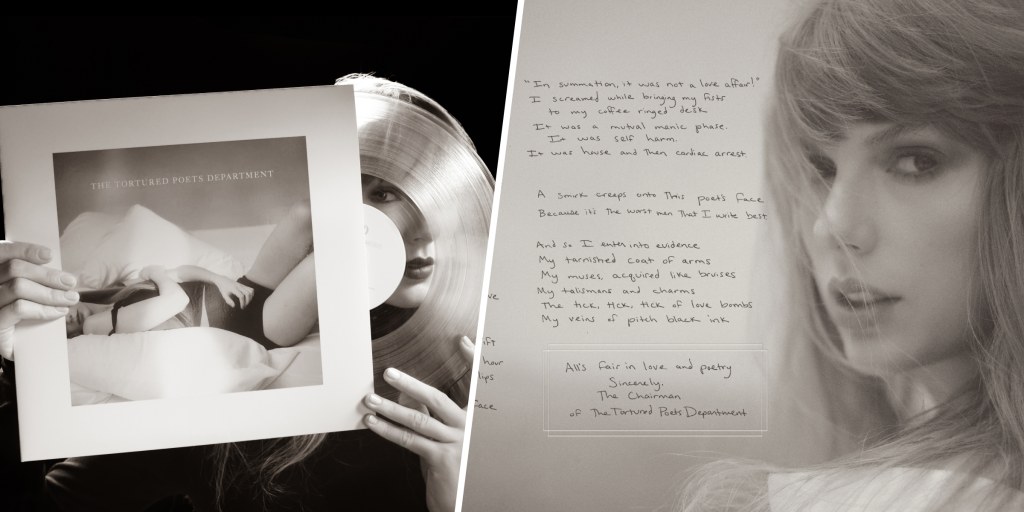 THE TORTURED POETS DEPARTMENT
ve
ift
hour
lips
face
"In summation, it was not a love affair!"
I screamed while bringing my fists
to my coffee ringed desk
It was a mutual manic phase.
It was self harm.
It was house and then cardiac arrest.
A smirk creeps onto this poet's face
Because it's the worst men that I write best
And so I enter into evidence
My tarnished coat of arms
My muses, acquired like bruises
My talismans and charms
The tick, tick, tick of love bombs
My veins of pitch black ink
All's fair in love and poetry
Sincerely,
The Chairman
of The Tortured Poets Department